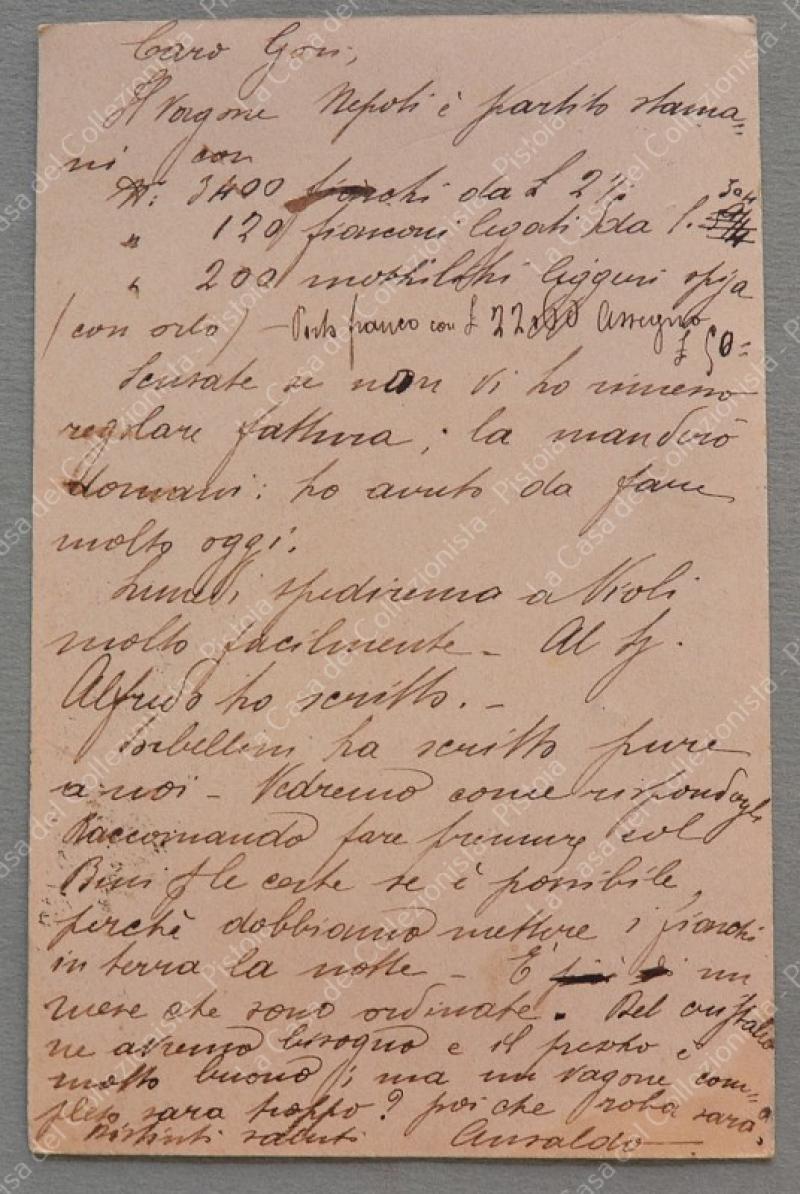 Caro Gori,
Il Vagone Nepoli è partito stama=
ni con
N: 3400 fiaschi da £ 2½
" 120 fiasconi legati da l.
" 200 leggeri
(con orlo) - Porto franco con £ 22000 Assegno
£ 50=
Scusate se non vi ho rimesso
regolare fattura; la manderò
domani: ho avuto da fare
molto oggi.
Lunedì spediremo a Nioli
molto facilmente - Al Sig.
Alfredo ho scritto. -
ha scritto pure
a noi - Vedremo come rispondergli
Raccomando fare premure col
Bini p le ceste se è possibile,
perchè dobbiamo mettere i fiaschi
in terra la notte - È un
mese che sono ordinate. Del cristallo
ne avremo bisogno e il prezzo è
molto buono; ma un vagone com=
pleto sarà troppo? poi che roba sarà?
Distinti saluti Ansaldo
La Casa del Collezionista - Pistoia